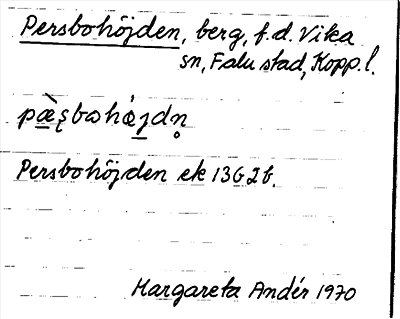 Persbohöjden, berg, f.d. Vika
sn, Falu stad, Kopp.l.
pæ̀ʂbohǿjdn̥
Persbohöjden ek 13G 2b.
Margareta Andér 1970